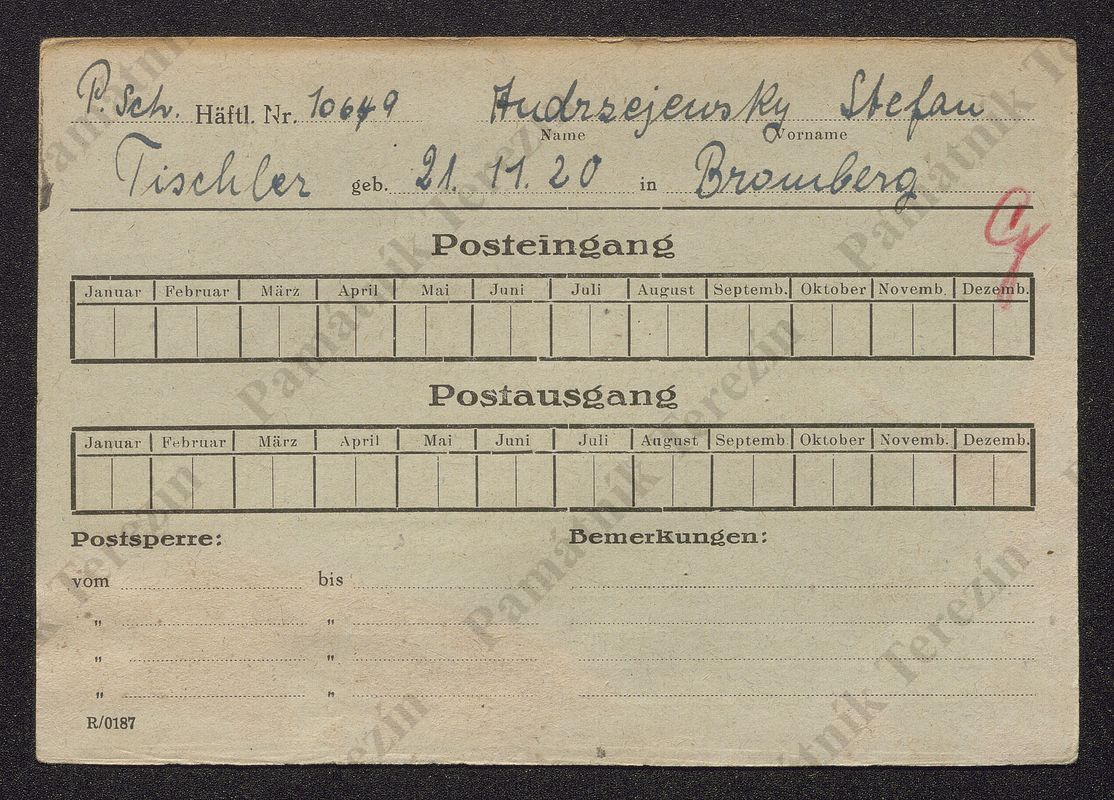 P. Sch. Häftl. Nr. 10649 Andrzejewsky Stefan
Name Vorname
Tischler geb. 21. 11. 20 in Bromberg
Posteingang
Januar Februar März April Mai Juni Juli August Septemb. Oktober Novemb. Dezemb.
Postausgang
Januar Februar März April Mai Juni Juli August Septemb. Oktober Novemb. Dezemb.
Postsperre: Bemerkungen:
vom bis
" "
" "
" "
R/0187
Památník Terezín